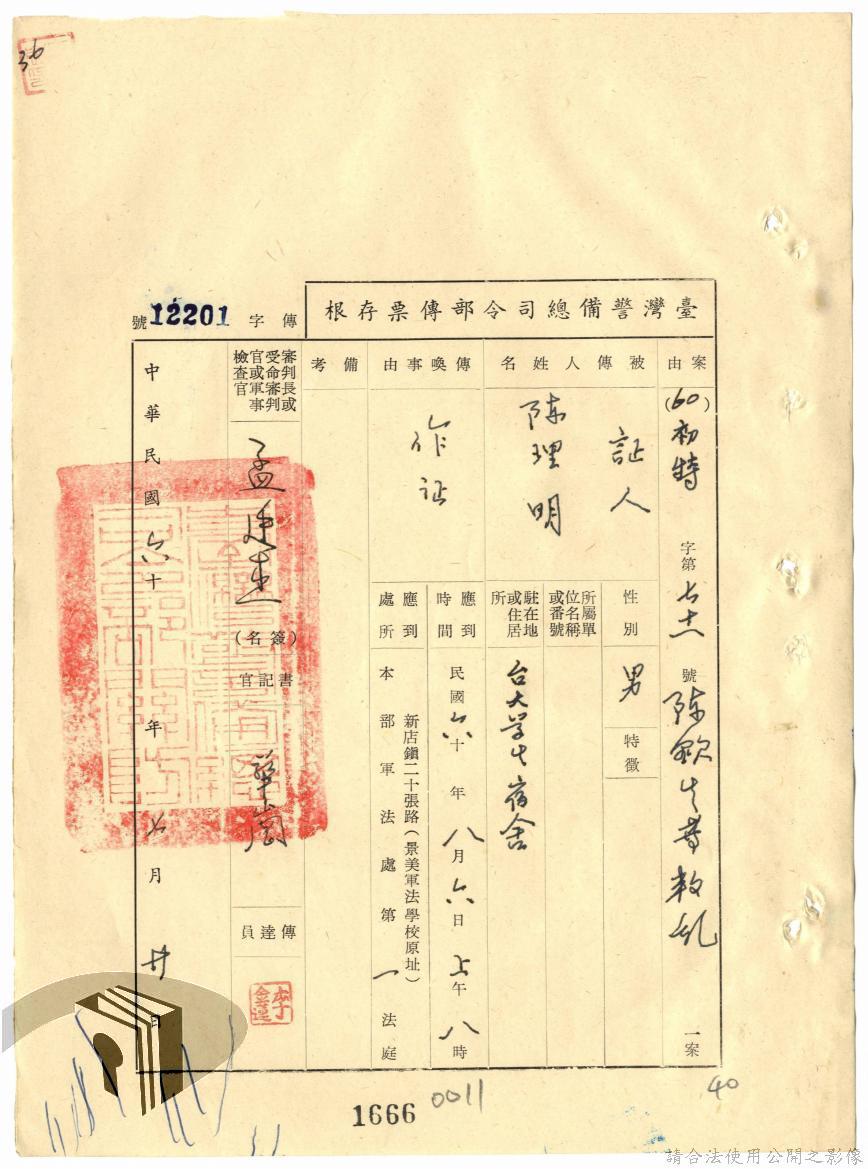 36
臺灣警備總司令部傳票存根
傳字
12201
號
案由
(60)初特
字第
號
陈欽生等叛乱
一案
被傳人姓名
証人
陈理明
性別
男
特徵
所屬單位名稱或番號
駐在地或住居所
台大学生宿舍
傳喚事由
作证
應到時間
民國六十年八月六日上午八時
應到處所
新店鎮二十張路(景美軍法學校原址)
本部軍法處第一法庭
備考
審判長或受命審判官或軍事檢查官
孟
(簽名)
書記官
傳達員
中華民國六十年七月廿日
1666
0011
40
請合法使用公開之影像